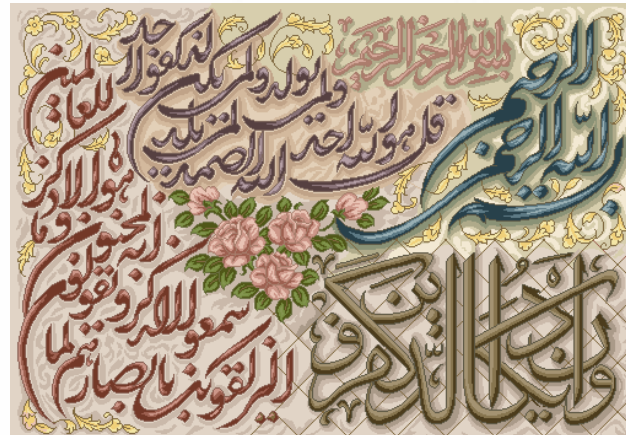 بسم الله الرحمن الرحيم
بسم الله الرحمن الرحيم
قل هو الله احد الله الصمد لم يلد
ولم يولد ولم يكن له كفوا احد
وان يكاد الذين كفرو
ا ليزلقونك بابصارهم لما
سمعوا الذكر ويقولون
انه لمجنون وما
هو الا ذكر
للعالمين